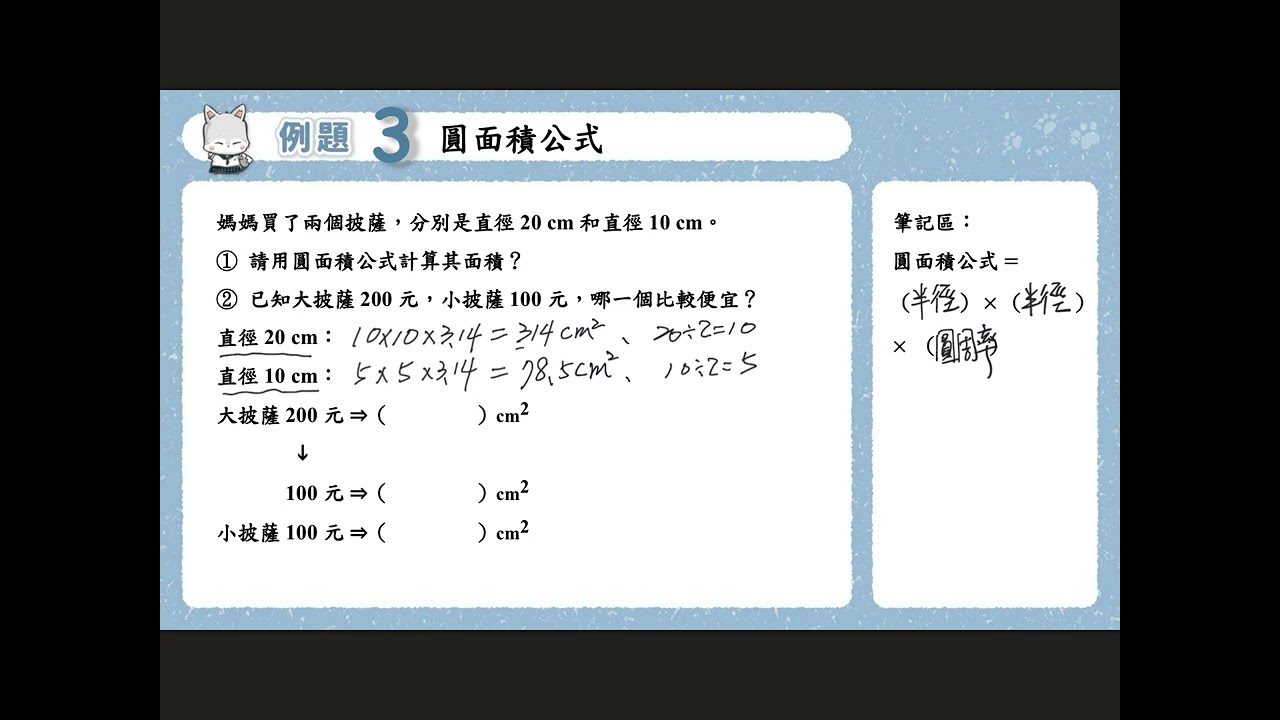 例題 3 圓面積公式
媽媽買了兩個披薩，分別是直徑 20 cm 和直徑 10 cm。
① 請用圓面積公式計算其面積？
② 已知大披薩 200 元，小披薩 100 元，哪一個比較便宜？
直徑 20 cm： 10×10×3.14＝314cm²、 20÷2=10
直徑 10 cm： 5×5×3.14＝78.5cm²、 10÷2=5
大披薩 200 元 ⇒（ ）cm²
↓
100 元 ⇒（ ）cm²
小披薩 100 元 ⇒（ ）cm²
筆記區：
圓面積公式＝
（半徑）×（半徑）
×（圓周率